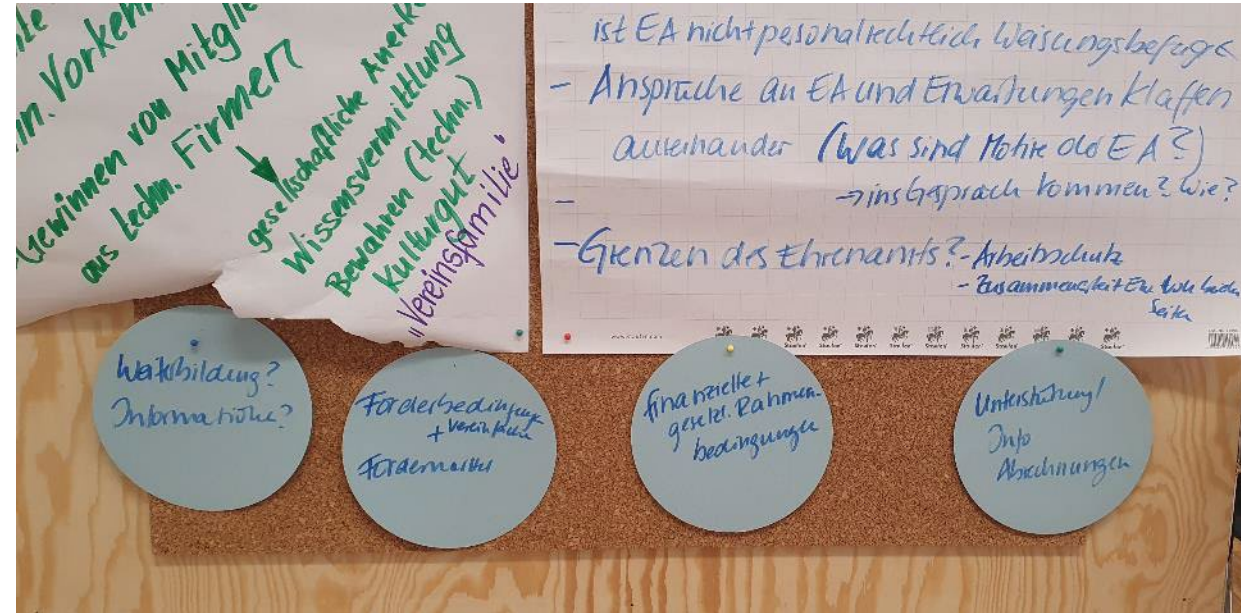 nn. Vorkehr
Gewinnen von Mitglie
aus techn. Firmen
gesellschaftliche Anerke
Wissensvermittlung
Bewahren (techn.)
Kulturgut
"Vereinsfamilie"
ist EA nicht personalrechtlich weisungsbefugt
- Ansprüche an EA und Erwartungen klaffen
auseinander (Was sind Motive des EA?)
→ ins Gespräch kommen? Wie?
-
- Grenzen des Ehrenamts? - Arbeitsschutz
- Zusammenarbeit
Seiten
Staufen
Weiterbildung?
Informationen?
Förderbedingungen
+ vereinfachen
Fördermittel
finanzielle +
gesetzl. Rahmen-
bedingungen
Unterstützung/
Info
Abrechnungen